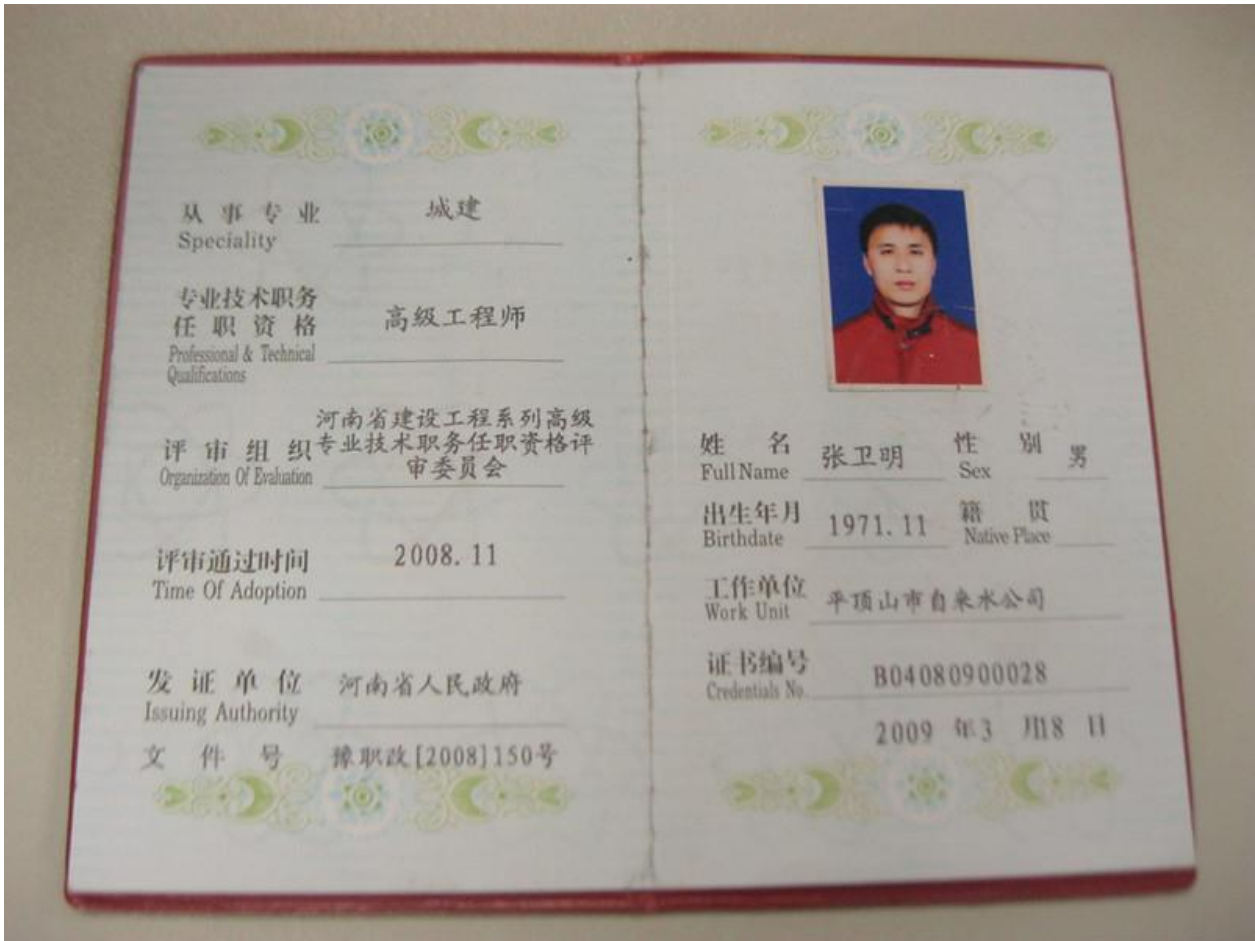 从事专业 城建
Speciality
专业技术职务
任职资格 高级工程师
Professional & Technical
Qualifications
河南省建设工程系列高级
评审组织 专业技术职务任职资格评
Organization Of Evaluation 审委员会
评审通过时间 2008.11
Time Of Adoption
发证单位 河南省人民政府
Issuing Authority
文件号 豫职改[2008]150号
姓名 张卫明 性别 男
Full Name Sex
出生年月 1971.11 籍贯
Birthdate Native Place
工作单位 平顶山市自来水公司
Work Unit
证书编号 B04080900028
Credentials No.
2009 年3 月18 日